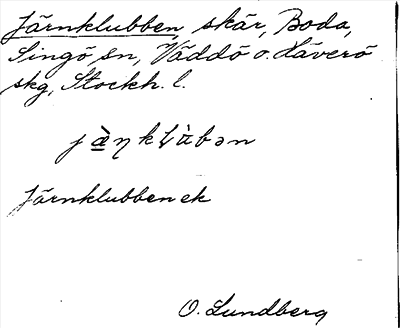 Järnklubben, skär, Boda,
Singö sn, Väddö o. Häverö
skg, Stockh. l.
jæ̀ŋkɭùbən
Järnklubben ek
O. Lundberg